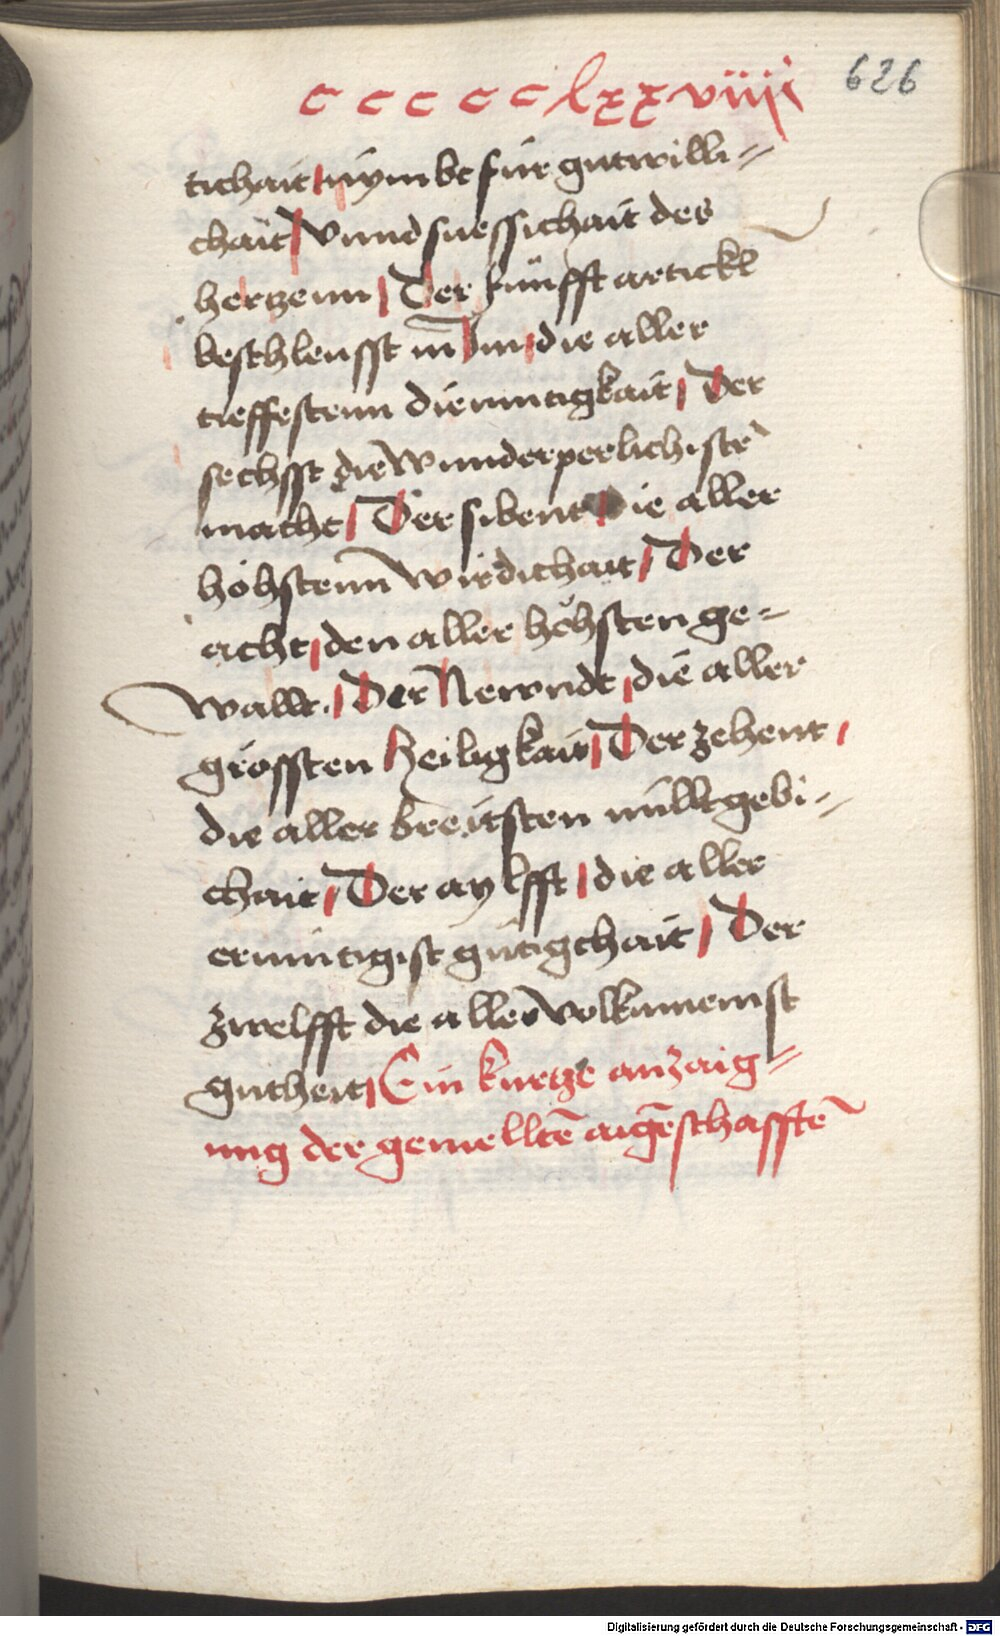 c c c c c lxxviiij 626
tichait nymbt für gutwilli=
chait Vnnd suessichait des
hertzenn Der fünfft artickl
beschleusst in Im die aller
tieffestenn diemutigkait Der
sechsst die wunderperlichiste
macht Der sibent die aller
höhstenn wirdichait Der
acht den aller höhsten ge=
wallt. Der Newndt die aller
grössten heiligkait Der zehent
die aller breitsten milltgebi=
chait Der aylfft die aller
ermütigist gütigchait Der
zwelfft die aller volkumenist
gutheit Ein kurtze anzaig=
ung der gemelltē aigēschafftē
Digitalisierung gefördert durch die Deutsche Forschungsgemeinschaft - DFG